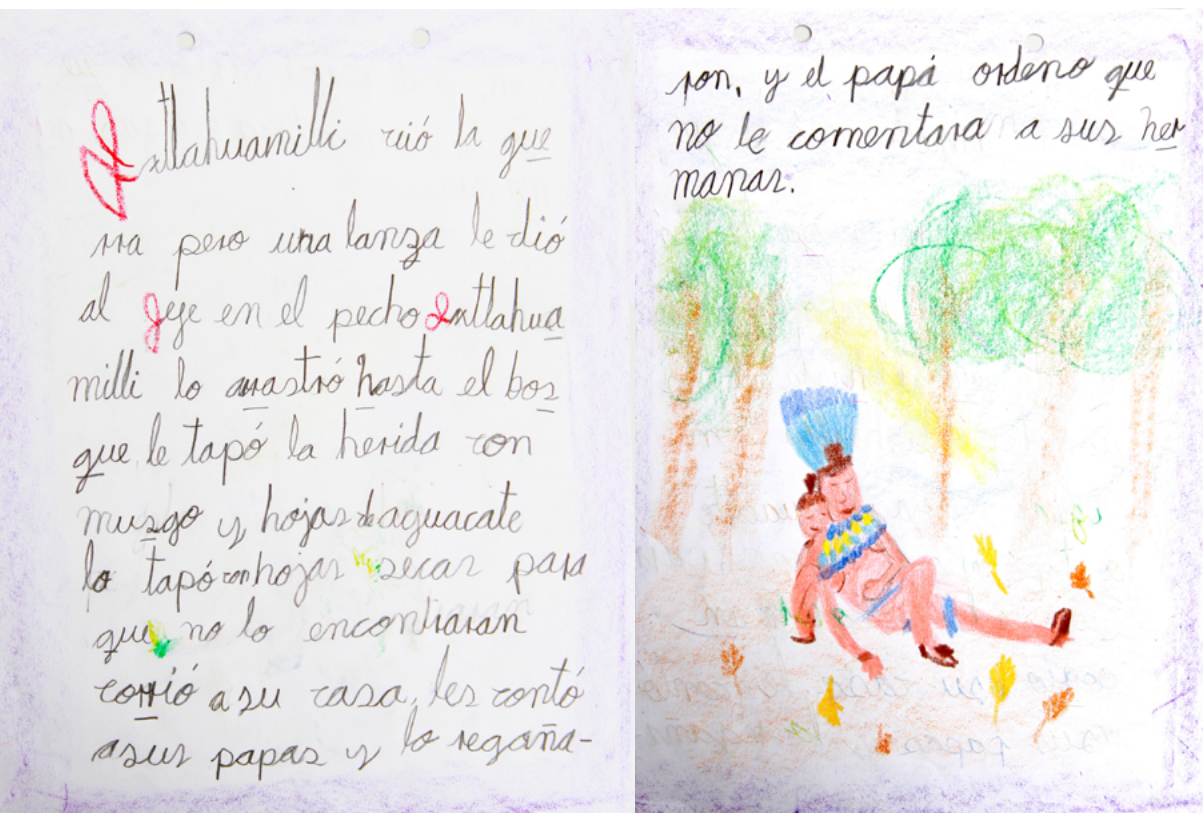 Ixtlahuamilli vió la gue
rra pero una lanza le dió
al Jefe en el pecho Ixtlahua
milli lo arrastró hasta el bos
que le tapó la herida con
musgo y hojas de aguacate
lo tapó con hojas secas para
que no lo encontraran
corrió a su casa, les contó
a sus papas y lo regaña-
ron, y el papá ordeno que
no le comentara a sus her
manas.